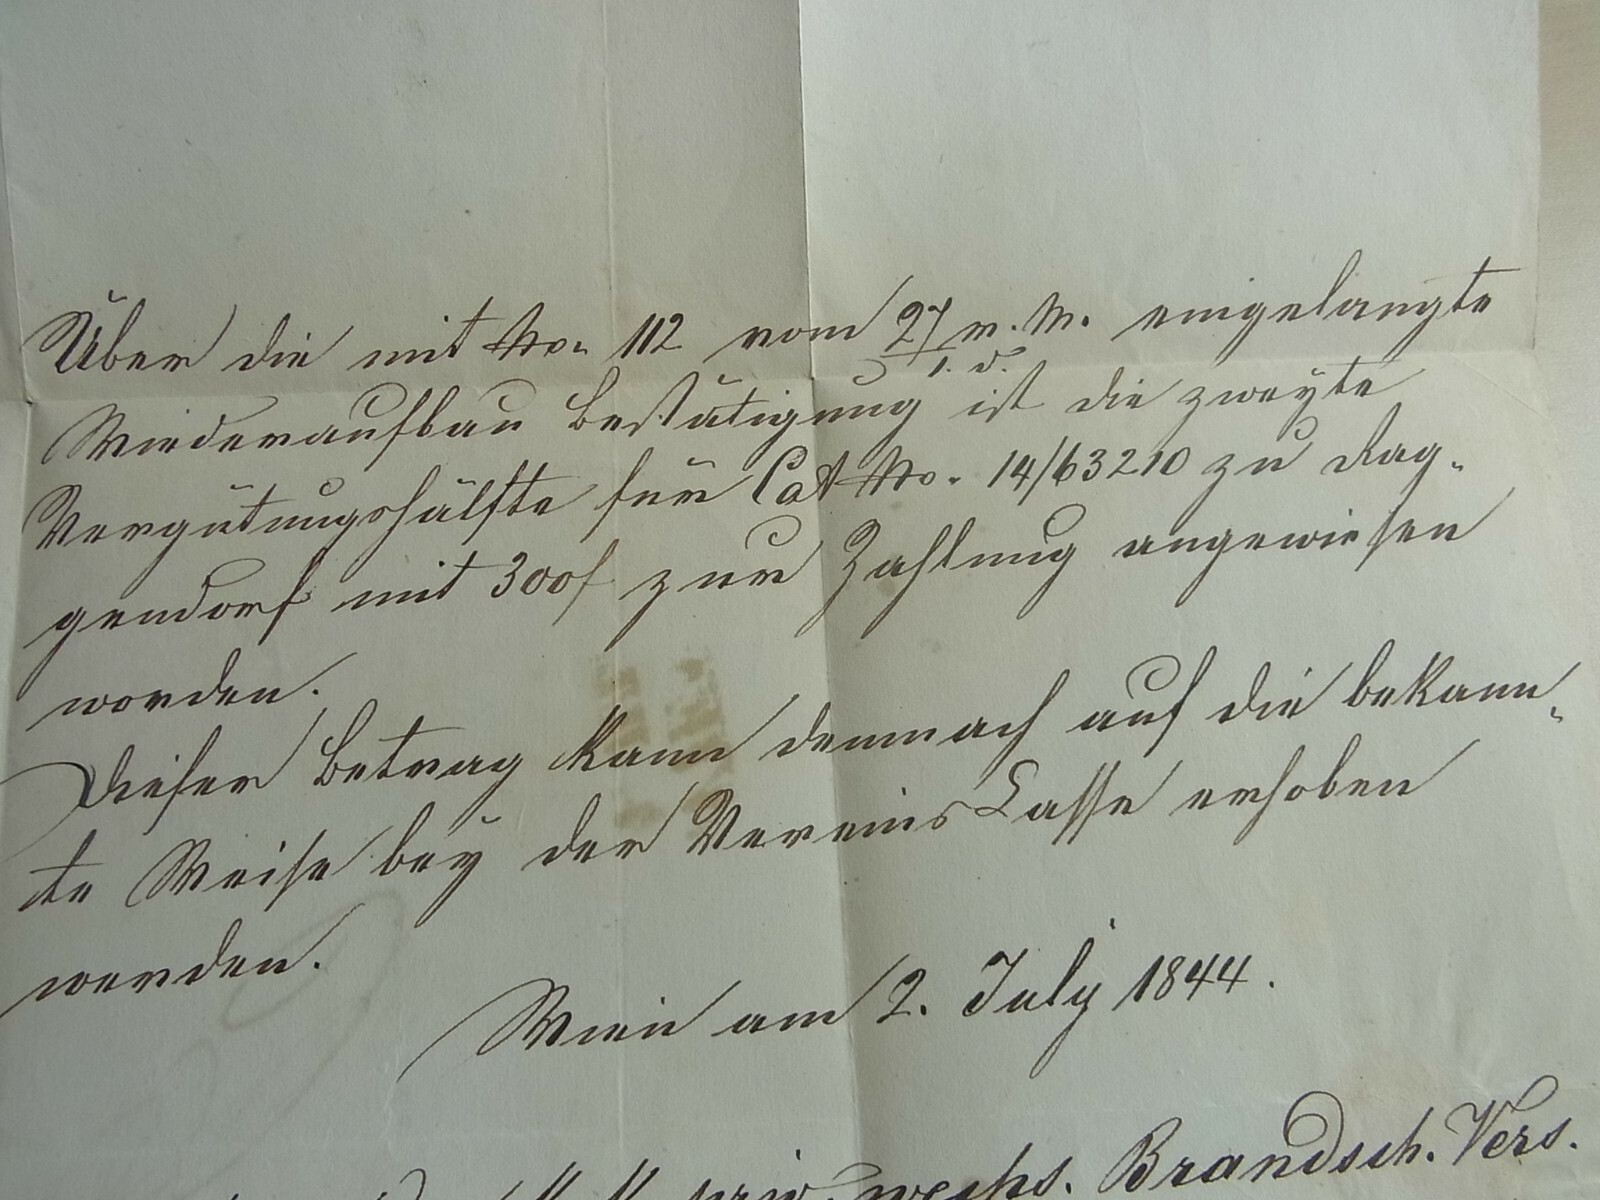 Über die mit No. 112 vom 27/1. d. v. M. eingelangte
Wiederaufbau Bestätigung ist die zweyte
Vergütungshälfte für Cat No. 14/63210 zu Rag-
gendorf mit 300f zur Zahlung angewiesen
worden.
Dieser Betrag kann demnach auf die bekann-
te Weise bey der Vereins Casse erhoben
werden.
Wien am 2. July 1844.
priv. wechs. Brandsch. Vers.